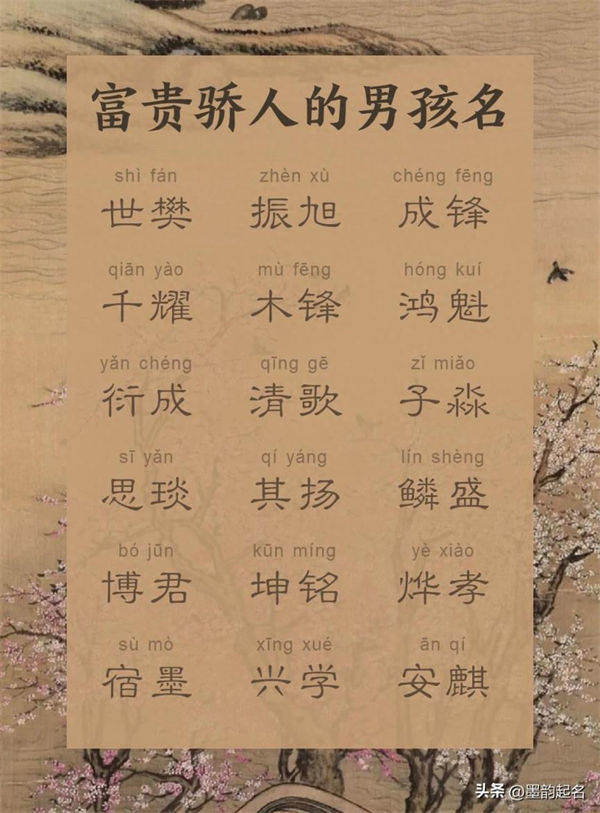 富贵骄人的男孩名
shì fán zhèn xù chéng fēng
世樊 振旭 成锋
qiān yào mù fēng hóng kuí
千耀 木锋 鸿魁
yǎn chéng qīng gē zǐ miǎo
衍成 清歌 子淼
sī yǎn qí yáng lín shèng
思琰 其扬 鳞盛
bó jūn kūn míng yè xiào
博君 坤铭 烨孝
sù mò xīng xué ān qí
宿墨 兴学 安麒
头条 @墨韵起名